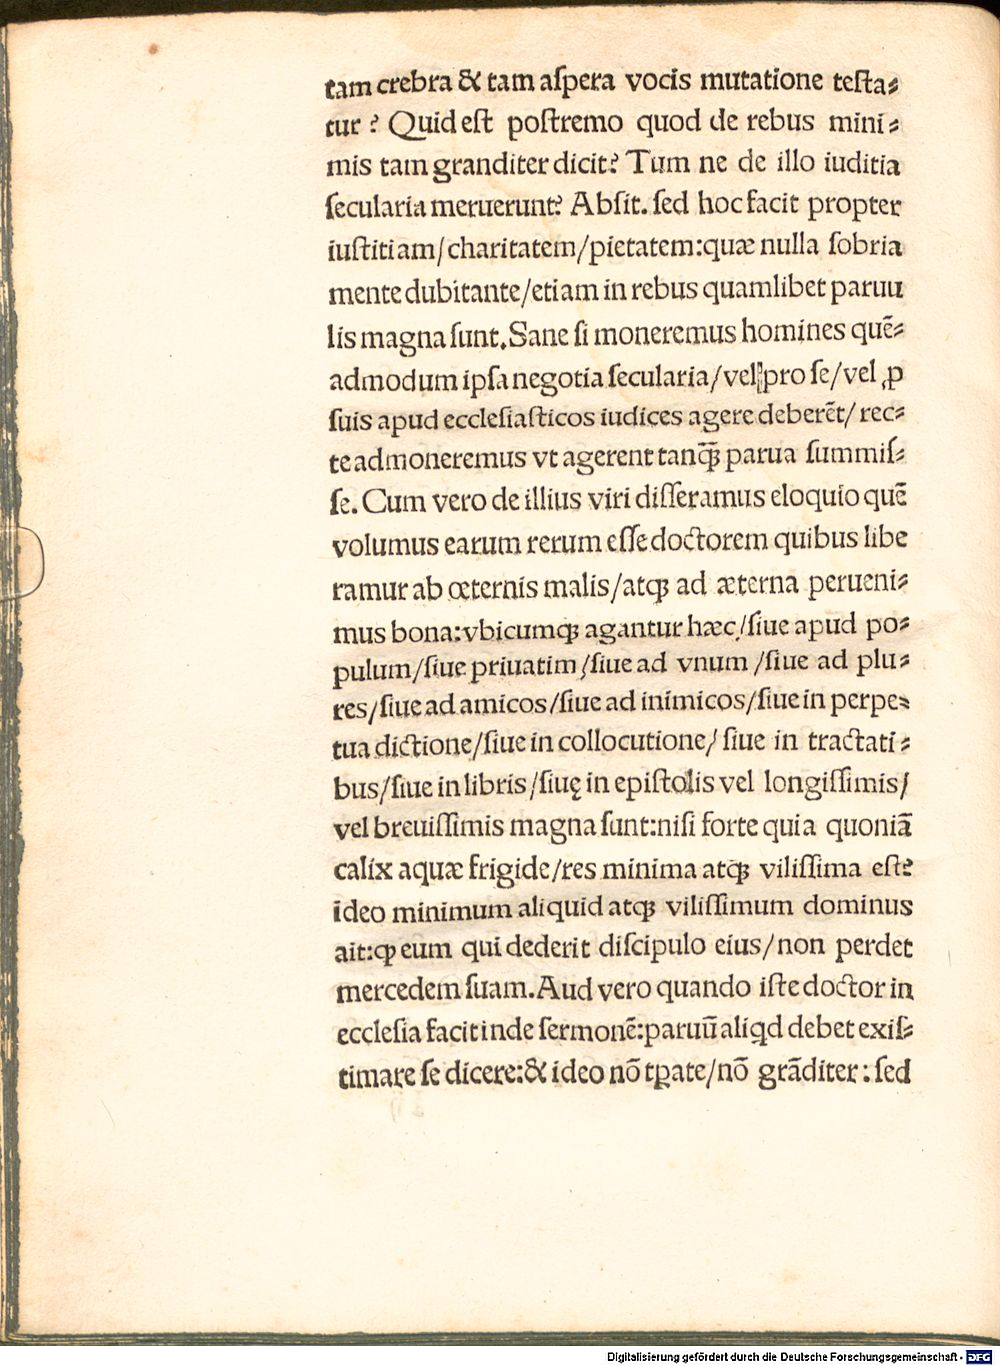 tam crebra & tam aſpera vocis mutatione teſta⸗
tur ? Quid eſt poſtremo quod de rebus mini⸗
mis tam granditer dicit? Tum ne de illo iuditia
ſecularia meruerunt? Abſit. ſed hoc facit propter
iuſtitiam/charitatem/pietatem:quæ nulla ſobria
mente dubitante/etiam in rebus quamlibet paruu
lis magna ſunt. Sane ſi moneremus homines quē⸗
admodum ipſa negotia ſecularia/vel pro ſe/vel ꝓ
ſuis apud eccleſiaſticos iudices agere deberēt/ rec⸗
te admoneremus vt agerent tanq̄ꝫ parua ſummiſ⸗
ſe. Cum vero de illius viri diſſeramus eloquio quē
volumus earum rerum eſſe doctorem quibus libe
ramur ab œternis malis/atqꝫ ad æterna perueni⸗
mus bona:vbicumqꝫ agantur hæc/ſiue apud po⸗
pulum/ſiue priuatim/ſiue ad vnum /ſiue ad plu⸗
res/ſiue ad amicos/ſiue ad inimicos/ſiue in perpe⸗
tua dictione/ſiue in collocutione/ ſiue in tractati⸗
bus/ſiue in libris/ſiuę in epiſtolis vel longiſſimis/
vel breuiſſimis magna ſunt:niſi forte quia quoniā
calix aquæ frigide/res minima atqꝫ viliſſima eſt?
ideo minimum aliquid atqꝫ viliſſimum dominus
ait:ꝙ eum qui dederit diſcipulo eius/non perdet
mercedem ſuam. Aud vero quando iſte doctor in
eccleſia facit inde ſermonē:paruū aliqd debet exiſ⸗
timare ſe dicere:& ideo nō tꝑate/nō grāditer : ſed
Digitalisierung gefördert durch die Deutsche Forschungsgemeinschaft - DFG